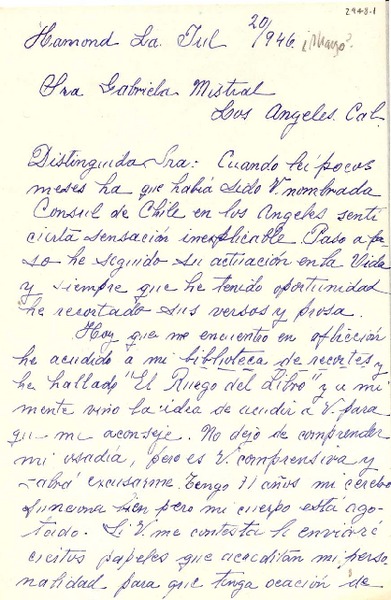 2948-1
Hamond La. Jul 20/946 ¿Marzo?
Sra Gabriela Mistral
Los Angeles. Cal.
Distinguida Sra: Cuando leí pocos
meses ha que había sido V. nombrada
Consul de Chile en los Angeles senti
cierta sensación inexplicable. Paso a pa-
so he seguido su actuación en la Vida
y siempre que he tenido oportunidad
he recortado sus versos y prosa.
Hoy que me encuentro en aflicción
he acudido a mi biblioteca de recortes y
he hallado "El Ruego del Libro" y a mi
mente vino la idea de acudir a V. para
que me aconseje. No dejo de comprender
mi osadía, pero es V. comprensiva y
sabrá excusarme. Tengo 71 años mi cerebro
funciona bien pero mi cuerpo está ago-
tado. Si V. me contesta le enviaré
ciertos papeles que acreditan mi perso
nalidad para que tenga ocación de